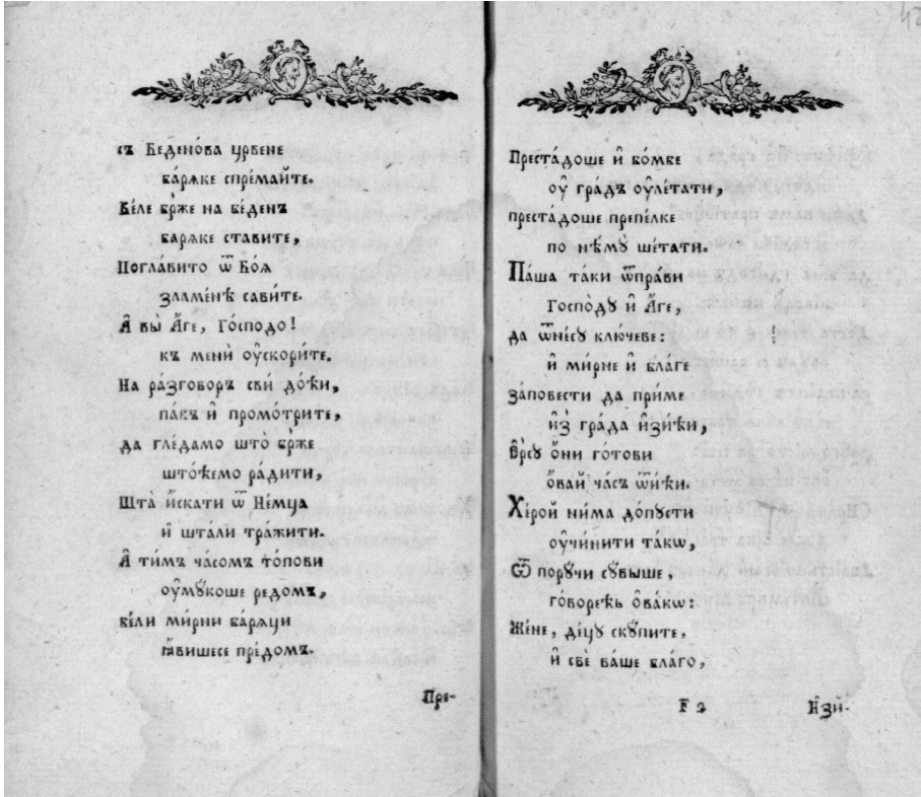 съ Беде́нова црвене
барѧке спре́майте.
Беле брже на беденъ
барѧке ставите,
Погла́вито ѿ Бо́ѧ
зламе́нѣ савите.
А҆ вы̀ А҆́ге, Го́сподо!
къ мени̏ оу҆скори́те.
На ра́зговоръ сви до́ћи,
пакъ и҆ промо́трите,
да гле́дамо што брже
што́ћемо ра́дити,
Шта̀ и҆скати ѿ Не́мца
и҆ штали тра́жити.
А҆ ти́мъ ча́сомъ то́пови
оу҆му́коше редомъ,
бе́ли ми́рни ба́рѧци
ꙗ҆вишесе пре́домъ.
Пре-
47
Преста́доше и҆ бо́мбе
оу҆ гра́дъ оу҆ле́тати,
преста́доше препе́лке
по не́мꙋ ше́тати.
Па́ша та́ки ѿпра́ви
Господꙋ̀ и҆ А҆́ге,
да ѿне́сꙋ клю́чеве:
и҆ ми́рне и҆ бла́ге
за́повести да при́ме
и҆з̾ гра́да и҆зи́ћи,
є҆́рсꙋ о҆́ни го́тови
о҆́вай ча́съ ѿи́ћи.
Хе́рой ни́ма до́пꙋсти
оучи́нити та́кѡ,
Ѿ порꙋ́чи сꙋ́выше,
го́ворећь о҆ва́кѡ:
Же́не, де́цꙋ скꙋ́пите,
и҆ све̏ ва́ше бла́го,
F 2
И҆зи-